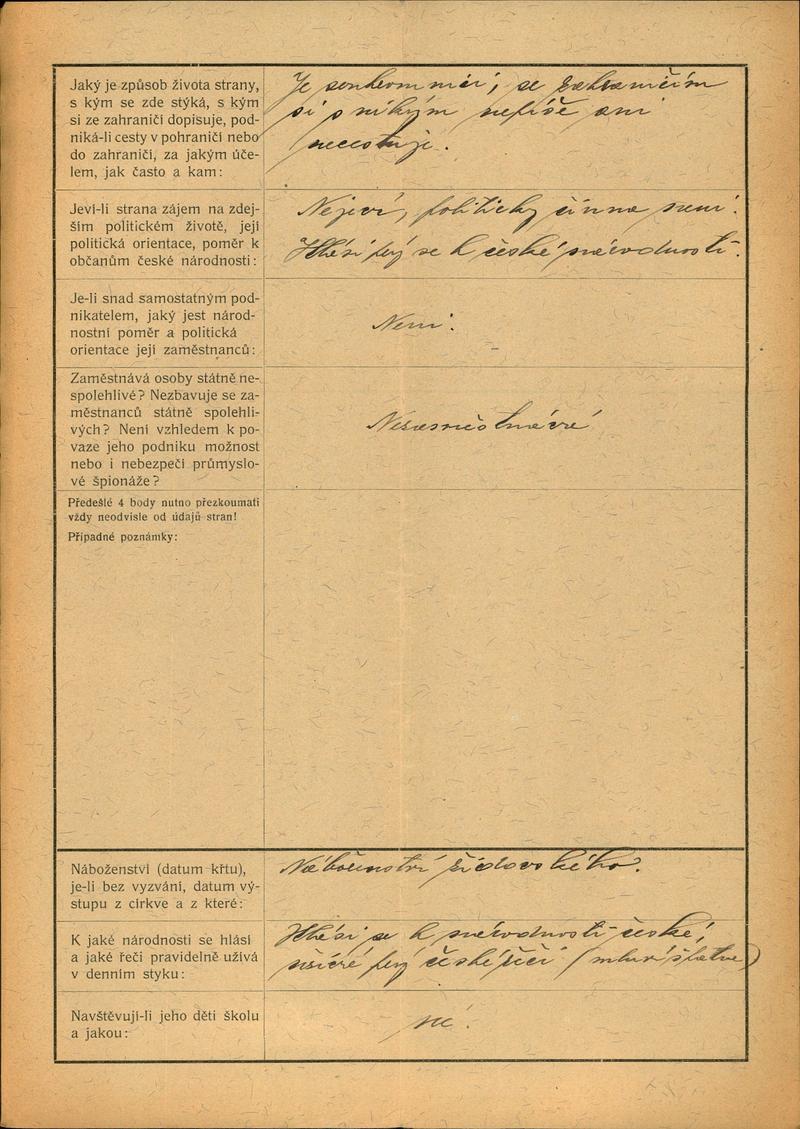 Jaký je způsob života strany,
s kým se zde stýká, s kým
si ze zahraničí dopisuje, pod-
niká-li cesty v pohraničí nebo
do zahraničí, za jakým úče-
lem, jak často a kam:
Je soukromničí, se zahraničím
si s nikým nepíše ani
necestuje.
Jeví-li strana zájem na zdej-
ším politickém životě, její
politická orientace, poměr k
občanům české národnosti:
Nejeví, politicky činna není.
Hlásí prý se k české národnosti.
Je-li snad samostatným pod-
nikatelem, jaký jest národ-
nostní poměr a politická
orientace její zaměstnanců:
Není.
Zaměstnává osoby státně ne-
spolehlivé? Nezbavuje se za-
městnanců státně spolehli-
vých? Není vzhledem k po-
vaze jeho podniku možnost
nebo i nebezpečí průmyslo-
vé špionáže?
Nezaměstnává
Předešlé 4 body nutno přezkoumati
vždy neodvisle od údajů stran!
Případné poznámky:
Náboženství (datum křtu),
je-li bez vyzvání, datum vý-
stupu z církve a z které:
Náboženství židovského.
K jaké národnosti se hlásí
a jaké řeči pravidelně užívá
v denním styku:
Hlásí se k národnosti české,
užívá prý české řeči (mluví špatně)
Navštěvují-li jeho děti školu
a jakou:
ne.